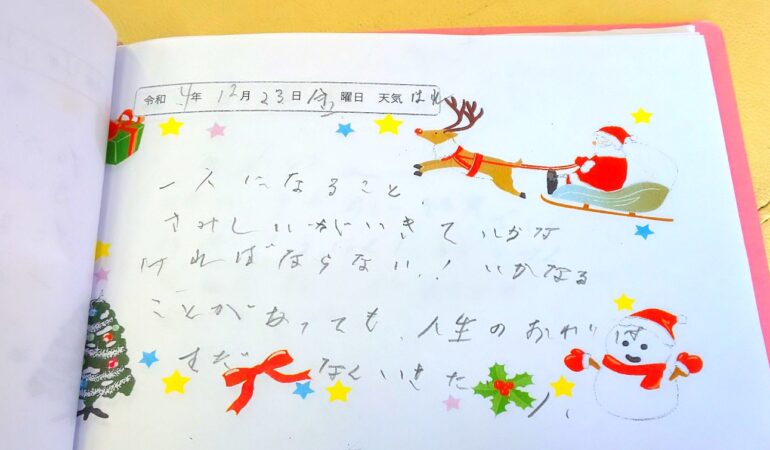 令和 4年 12月 23日 金曜日 天気 はれ
一人になること、
さみしいがいきていかな
ければならない！いかなる
ことがあっても、人生のおわりは
まだ なくいきた